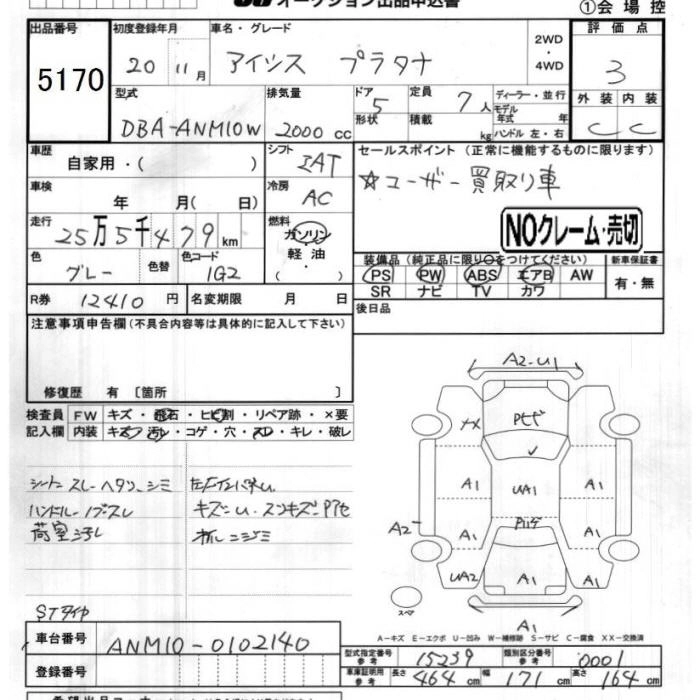 オークション出品申込書
①会場控
出品番号 初度登録年月 車名・グレード 評価点
5170 20 11月 アイシス プラタナ 2WD・4WD 3
型式 排気量 ドア 5 定員 7人 ディーラー・並行 外装 内装
形状 積載 kg モデル年式 年 ハンドル 左・右
DBA-ANM10W 2000cc C C
車歴 自家用・( ) シフト IAT セールスポイント (正常に機能するものに限ります)
車検 年 月( 日) 冷房 AC ☆ユーザー買取り車
走行 25万5千479km 燃料 ガソリン 軽油・( ) NOクレーム・売切
色 グレー 色替 色コード 1G2 装備品(純正品に限り○をつけてください) 新車保証書
PS PW ABS エアB AW 有・無
SR ナビ TV カワ
R券 12410円 名変期限 月 日 後日品
注意事項申告欄(不具合内容等は具体的に記入して下さい)
修復歴 有 〔箇所 〕
検査員 FW キズ・飛石・ヒビ割・リペア跡・×要
記入欄 内装 キズ・汚れ・コゲ・穴・スレ・キレ・破レ
シートスレ ヘタリ、シミ
ハンドルスレ
荷室汚レ
キズ
STタイヤ
A2-U1
A1
UA1
A1
A2
A1
A1
UA2
A1
A1
A1
スペア
A-キズ E-エクボ U-凹み W-補修跡 S-サビ C-腐食 XX-交換済
車台番号 ANM10-0102140
型式指定番号 参考 15239 類別区分番号 参考 0001
登録番号
車庫証明用 参考 長さ 464cm 幅 171cm 高さ 164cm